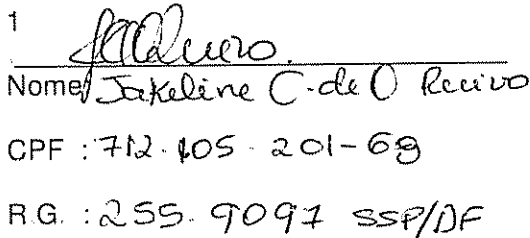 1
Nome Jakeline C. de O
CPF : 712.105.201-68
R.G. : 255.9097 SSP/DF